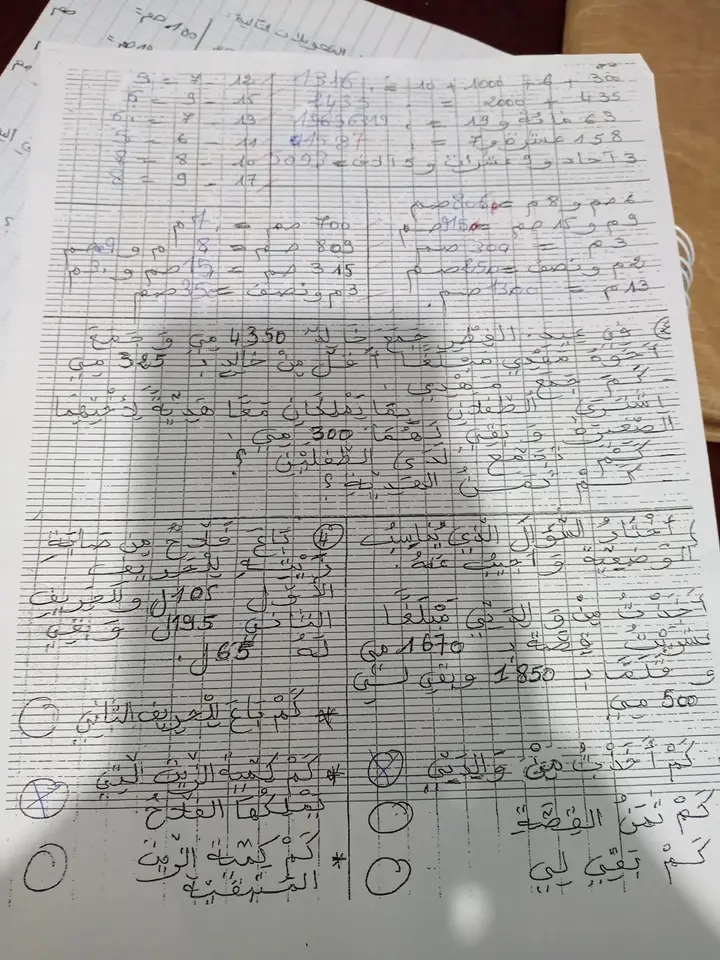 التحويلات التالية
300 + 6 + 1000 + 10 = 1316
435 + 2000 = 2435
63 مائة و 19 =
158 عشرة و 7 = 1587
3 آحاد و 9 عشرات و 5 آلاف = 5093
12 - 7 = 5
15 - 9 = 6
13 - 7 = 6
11 - 6 = 5
10 - 8 = 2
17 - 9 = 8
8 صم = 806 صم
9 م و 15 صم = 915 صم
3 م = 300 صم
2 م ونصف = 250 صم
13 م = 1300 صم
700 صم = 7 م
809 صم = 8 م و 9 صم
315 صم = 15 صم و 3 م
3 م ونصف = 350 صم
في عيد الفطر جمع خالد 4350 مي و جمع
أخوه مهدي مبلغا أقل من خالد بـ 325 مي
كم جمع مهدي
اشترى الطفلان بما يملكان معا هدية لأختهما
الصغيرة و بقي لهما 300 مي
كم أصبح لدى الطفلين ؟
كم ثمن الهدية ؟
أختار السؤال الذي يناسب
الوضعية و أجيب عنه.
أخذت من والدتي مبلغا
اشتريت قصة بـ 1670 مي
و قلما بـ 1850 وبقي لي
500 مي
كم أخذت من والدتي
كم ثمن القصة
كم بقي لي
4 باع فلاح من صابة
زيتـه للحريف
الأول 105 ل وللحريف
الثاني 195 ل وبقي
له 65 ل.
* كم باع للحريف الثاني
* كم كمية الزيت التي
يملكها الفلاح
* كم كمية الزيت
المتبقية